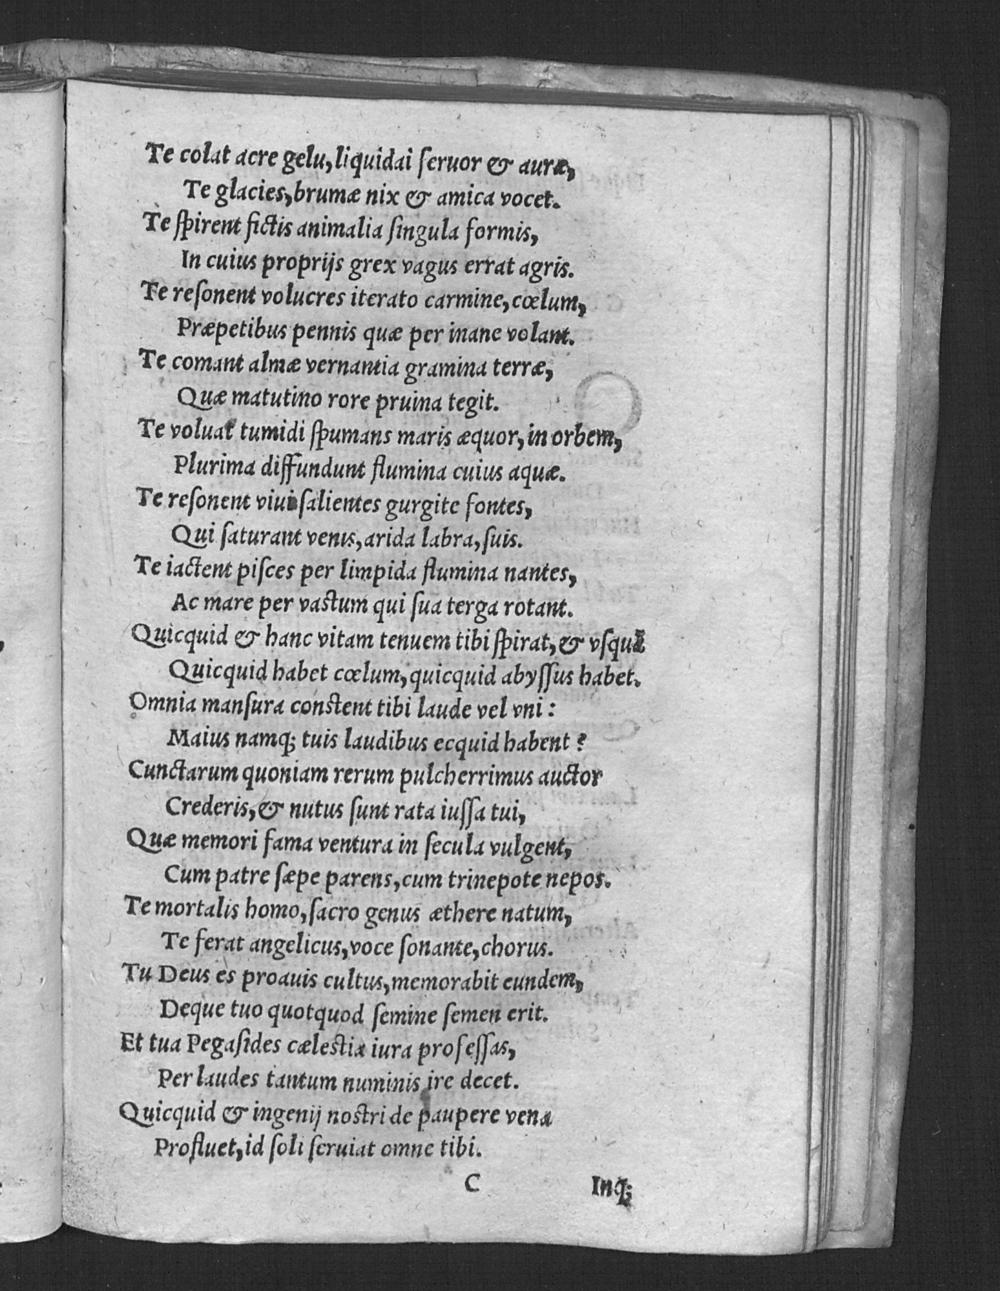 Te colat acre gelu, liquidai feruor & auræ,
Te glacies, brumæ nix & amica vocet.
Te ſpirent fictis animalia ſingula formis,
In cuius proprijs grex vagus errat agris.
Te reſonent volucres iterato carmine, cœlum,
Præpetibus pennis quæ per inane volant.
Te comant almæ vernantia gramina terræ,
Quæ matutino rore pruina tegit.
Te voluat tumidi ſpumans maris æquor, in orbem,
Plurima diffundunt flumina cuius aquæ.
Te reſonent viui ſalientes gurgite fontes,
Qui ſaturant venis, arida labra, ſuis.
Te iactent piſces per limpida flumina nantes,
Ac mare per vaſtum qui ſua terga rotant.
Quicquid & hanc vitam tenuem tibi ſpirat, & vſquã
Quicquid habet cœlum, quicquid abyſſus habet.
Omnia manſura conſtent tibi laude vel vni:
Maius namq; tuis laudibus ecquid habent?
Cunctarum quoniam rerum pulcherrimus auctor
Crederis, & nutus ſunt rata iuſſa tui,
Quæ memori fama ventura in ſecula vulgent,
Cum patre ſæpe parens, cum trinepote nepos.
Te mortalis homo, ſacro genus æthere natum,
Te ferat angelicus, voce ſonante, chorus.
Tu Deus es proauis cultus, memorabit eundem,
Deque tuo quotquod ſemine ſemen erit.
Et tua Pegaſides cæleſtia iura profeſſas,
Per laudes tantum numinis ire decet.
Quicquid & ingenij noſtri de paupere vena
Profluet, id ſoli ſeruiat omne tibi.
C Inq;